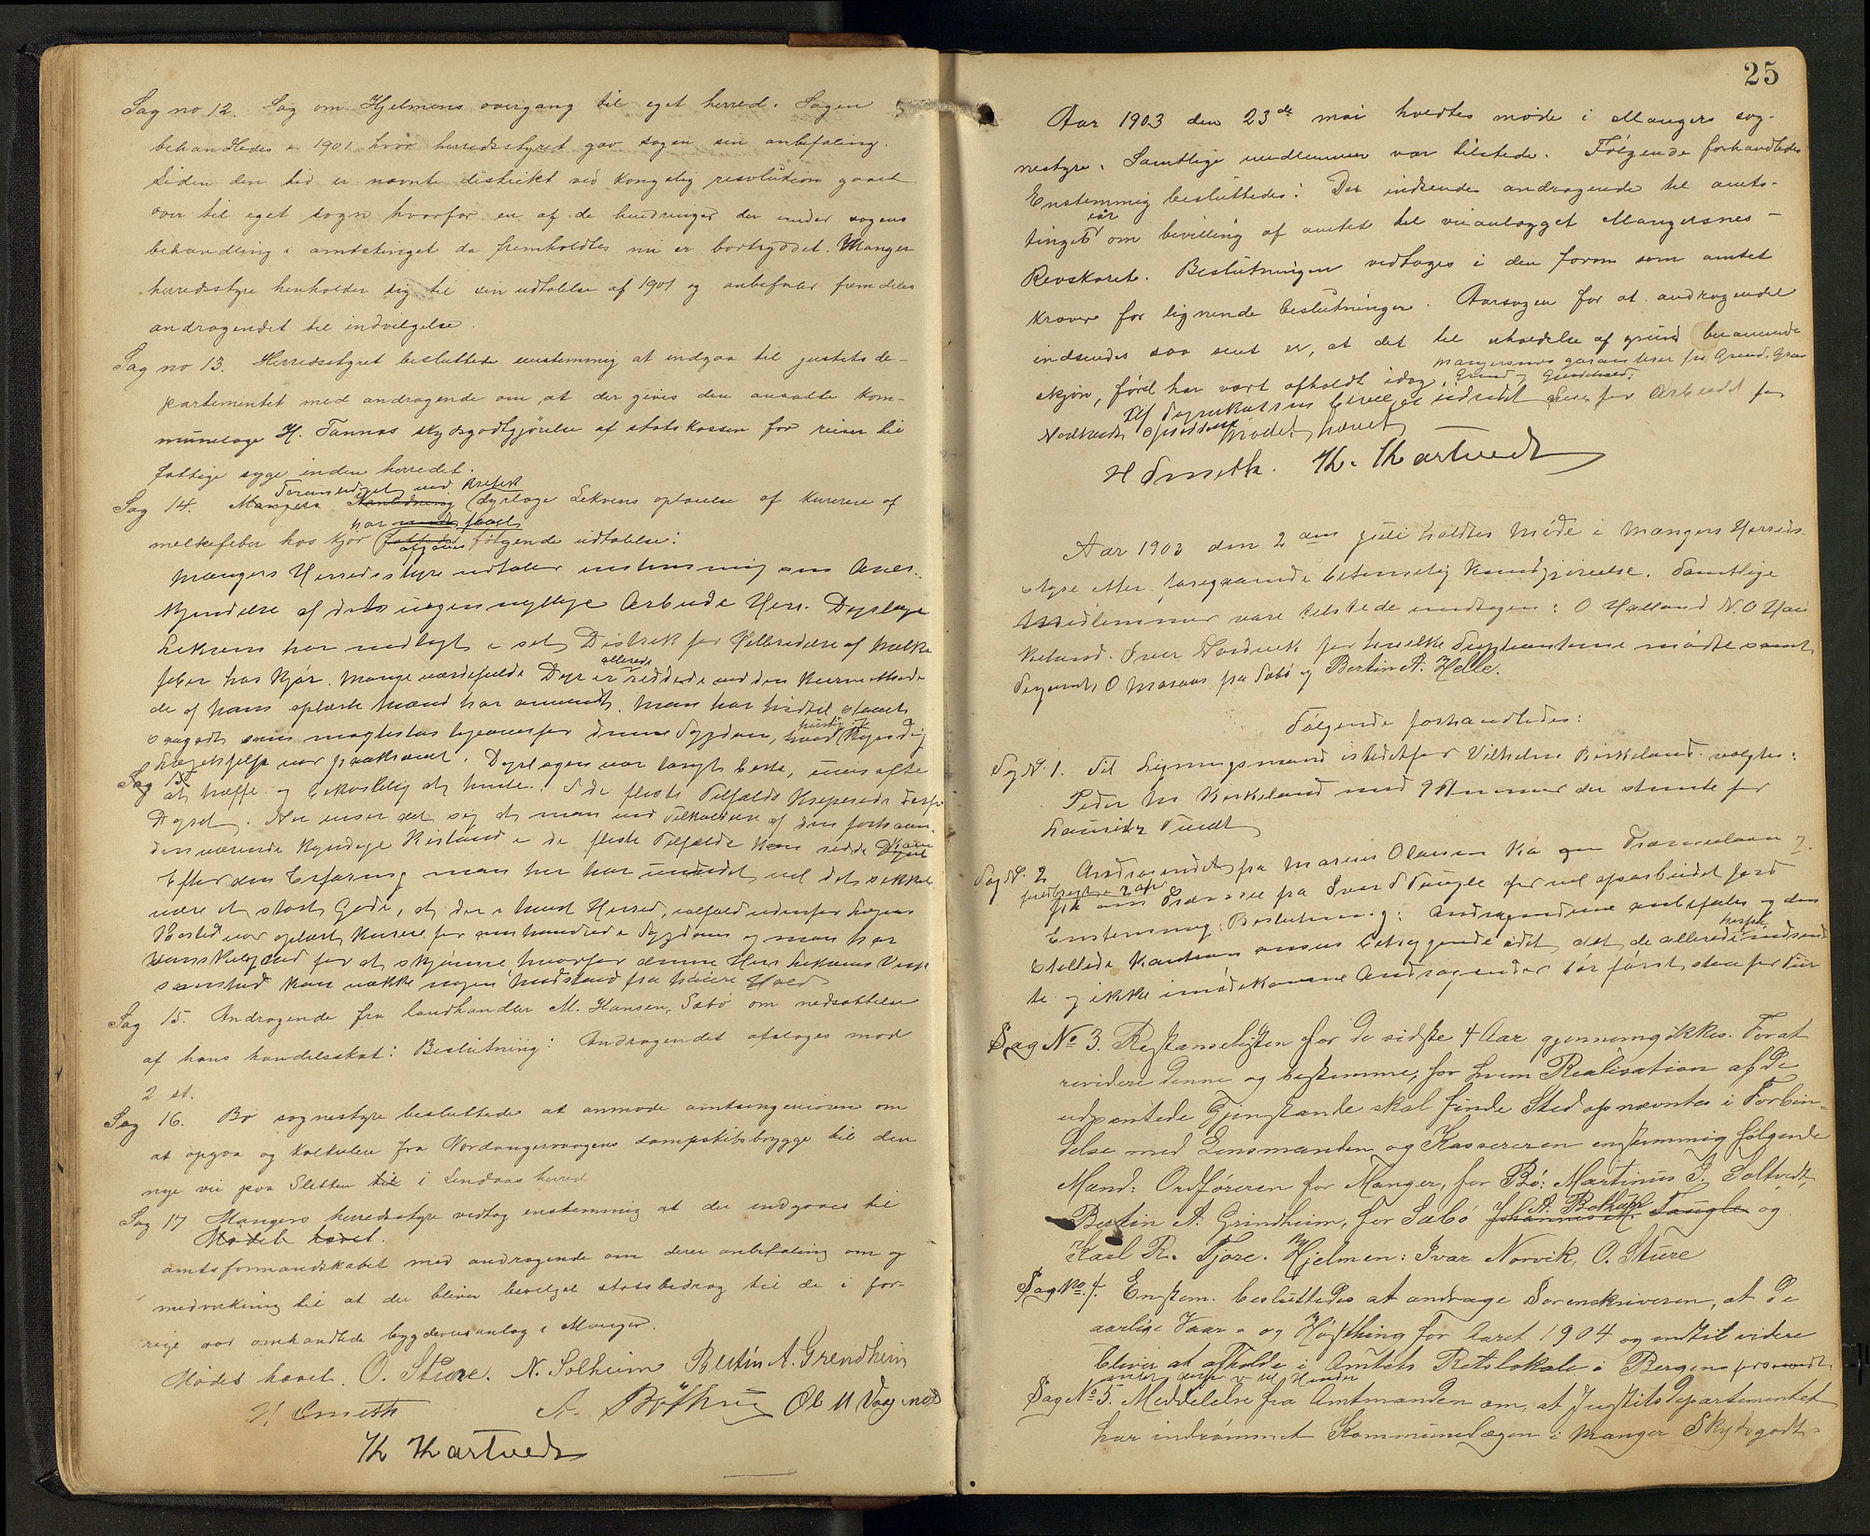 Sag no 12. Sag om Hjelmens overgang til eget herred. Sagen
behandledes i 1901 hvor herredsstyret gav sagen sin anbefaling.
Siden den tid er nævnte distrikt ved kongelig resolution gaaet
over til eget sogn hvorfor en af de hindringer der under sagens
behandling i amtstinget da fremholdtes nu er bortryddet. Manger
herredsstyre henholder sig til sin udtalelse af 1901 og anbefaler fremdeles
andragendet til indvilgelse.
Sag no 13. Herredsstyret besluttede enstemmig at indgaa til justitsde-
partementet med andragende om at der gives den ansatte kom-
munelæge H. Tannas skydsgodtgjørelse af statskassen for reiser til
fattige syge inden herredet.
Sag 14. Mangers dyrlæge Lekvens oplærelse af kurerere af
melkefeber hos kjør har følgende udtalelse:
Mangers Herredsstyre udtaler enstemmig sin Aner-
kjendelse af det uegennyttige Arbeide Herr Dyrlæge
Lekven har nedlagt i sit Distrik for Helbredelse af Melke
feber hos Kjør. Mange værdifulde Dyr er allerede reddede ved den Kurmethode
de af ham oplærte Mænd har anvendt. Man har hidtil staaet
saagodt som magtesløs ligeoverfor denne Sygdom, hvor hurtig og kyndig
Lægehjelp var paakrævet. Dyrlægen var langt borte, uvis ofte
at træffe og bekostelig at hente. I de fleste Tilfælde krepered derfor
Dyret. Nu viser det sig at man ved Tilkaldelse af den forhaan-
denværende kyndige Bistand i de fleste Tilfælde kan redde
Efter den Erfaring man her har vundet, vil det sikkert
være et stort Gode, at der i hvert Herred, ialfald udenfor Lægens
Bosted var oplært Kurere for omhandlede Sygdom og man har
vanskelig for at skjønne, hvorfor denne Herr Lekvens Virk
somhed kan vække nogen Modstand fra høiere Hold
Sag 15. Andragende fra landhandler M. Hansen, Sæbø om nedsættelse
af hans handelsskat: Beslutning: Andragendet afslages mod
2 st.
Sag 16. Bø sognestyre besluttede at anmode amtsingeniøren om
at opgaa og kalkulere fra Nordangervaagens dampskibsbrygge til den
nye vei paa Sletten til i Lindaas herred
Sag 17 Mangers herredsstyre vedtog enstemmig at der indgaaes til
Mødet hævet.
amtsformandskabet med andragende om deres anbefaling om og
medvirkning til at der bliver bevilget statsbidrag til de i for-
rige aar omhandlede bygdeveianlæg i Manger.
Mødet hævet. O. Sture. N. Solheim Bertin A. Grendheim
H Smeth Ol M Vaagenes
Th Thartvedt

25
Aar 1903 den 23de mai holdtes møde i Mangers sog-
nestyre. Samtlige medlemmer var tilstede. Følgende forhandledes
Enstemmig besluttedes: Der indsendes andragende til amts-
tinget iår om bevilling af amtet til veianlægget Mangersnes -
Revskaret. Beslutningen vedtages i den form som amtet
kræver for lignende beslutninger. Aarsagen for at andragendet
indsendes saa sent er, at det til erholdelse af grund benævnte
skjøn, først har vært afholdt idag.
Mødet hævet
H Smeth. Th. Thartvedt

Aar 1903 den 2den juli holdtes Møde i Mangers Herreds-
styre efter foregaaende betimelig Kundgjørelse. Samtlige
Medlemmer vare tilstede undtagen: O Halland N. O Hau
keland. Iver Nordvik for hvilke Suppleanterne mødte samt
Sergeant O Masaas fra Sæbø og Bertin A. Helle.
Følgende forhandledes:
Sag N. 1. Til Ligningsmand istedetfor Vilhelm Birkeland valgtes:
Peder M Birkeland med 9 Stemmer der stemte for
Lauritz Tvedt
Sag N. 2 Andragendet fra Marius Olausen
Enstemmig Beslutning: Andragendene anbefales og den
stillede Kaution ansees betryggende idet det de allerede indsendt
te og ikke imødekomne Andragender bør først staa for Tur
Sag No 3. Restanselisten for de sidste 4 Aar gjennemgikkes. For at
revidere denne og bestemme, for hvem Realisation af de
udpantede Gjenstande skal finde Sted opnævntes i Forbin-
delse med Lensmanden og Kassereren enstemmig følgende
Mænd: Ordføreren for Manger, for Bø: Martinus I. Soltvedt,
Bertin A. Grindheim, for Sæbø Johannes M. Taugle og
Karl R. Fjære. Hjelmen: Ivar Norvik, O. Sture
Sag No. 4. Enstem. besluttedes at andrage Sorenskriveren, at de
aarlige Vaar- og Høstthing for Aaret 1904 og indtil videre
bliver at afholde i Amtets Retslokale i Bergen
Sag No 5. Meddelelse fra Amtmanden om, at Justitsdepartementet
har indrømmet Kommunelægen i Manger Skydsgodt-